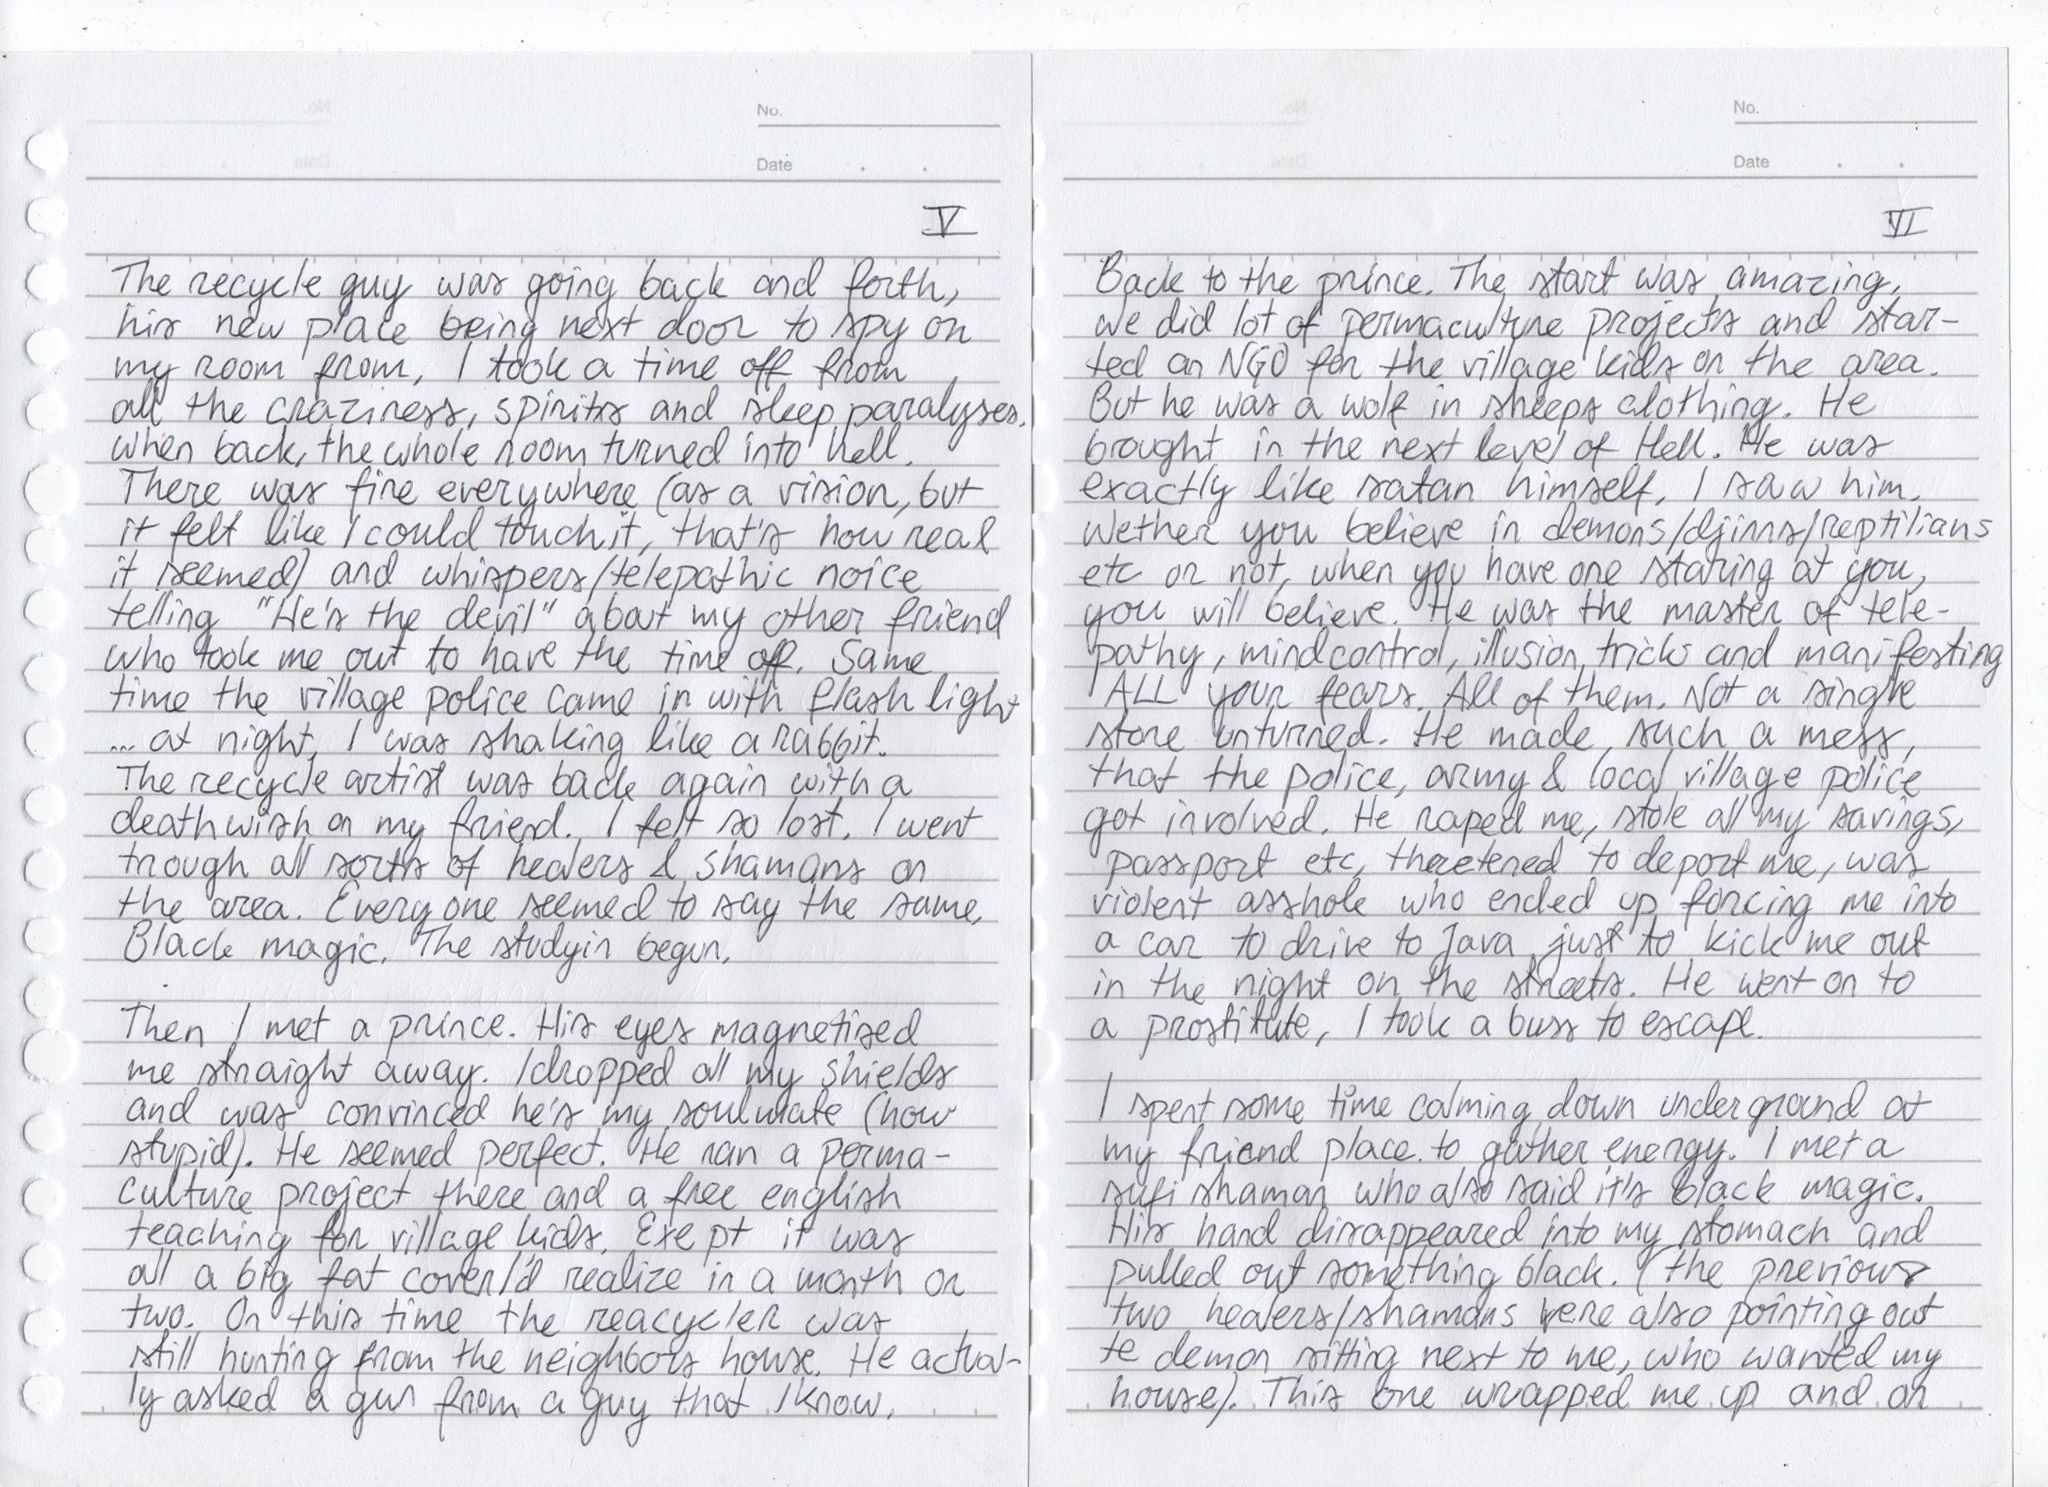 No.
Date . .
V
The recycle guy was going back and forth,
his new place being next door to spy on
my room from, I took a time off from
all the craziness, spirits and sleep paralyses.
when back, the whole room turned into hell.
There was fire everywhere (as a vision, but
it felt like I could touch it, that's how real
it seemed) and whispers/telepathic noice
telling "He's the devil" about my other friend
who took me out to have the time off. Same
time the village police came in with flash light
... at night, I was shaking like a rabbit.
The recycle artist was back again with a
deathwish on my friend. I felt so lost. I went
trough all sorts of healers & shamans on
the area. Everyone seemed to say the same,
Black magic. The studyin begun.
Then I met a prince. His eyes magnetised
me straight away. I dropped all my shields
and was convinced he's my soulmate (how
stupid). He seemed perfect. He ran a perma-
culture project there and a free english
teaching for village kids. Exept it was
all a big fat cover I'd realize in a month or
two. On this time the reacycler was
still hunting from the neighbors house. He actual-
ly asked a gun from a guy that I know.
No.
Date . .
VI
Back to the prince. The start was amazing,
we did lot of permaculture projects and star-
ted an NGO for the village kids on the area.
But he was a wolf in sheeps clothing. He
brought in the next level of Hell. He was
exactly like satan himself, I saw him.
Wether you believe in demons/djinns/reptilians
etc or not, when you have one staring at you,
you will believe. He was the master of tele-
pathy, mindcontrol, illusion, tricks and manifesting
ALL your fears. All of them. Not a single
stone unturned. He made such a mess,
that the police, army & local village police
got involved. He raped me, stole all my savings,
passport etc, theretened to deport me, was
violent asshole who ended up forcing me into
a car to drive to Java just to kick me out
in the night on the streets. He went on to
a prostitute, I took a buss to escape.
I spent some time calming down underground at
my friend place to gather energy. I met a
sufi shaman who also said it's black magic.
His hand disappeared into my stomach and
pulled out something black. (the previous
two healers/shamans were also pointing out
te demon sitting next to me, who wanted my
house). This one wrapped me up and on